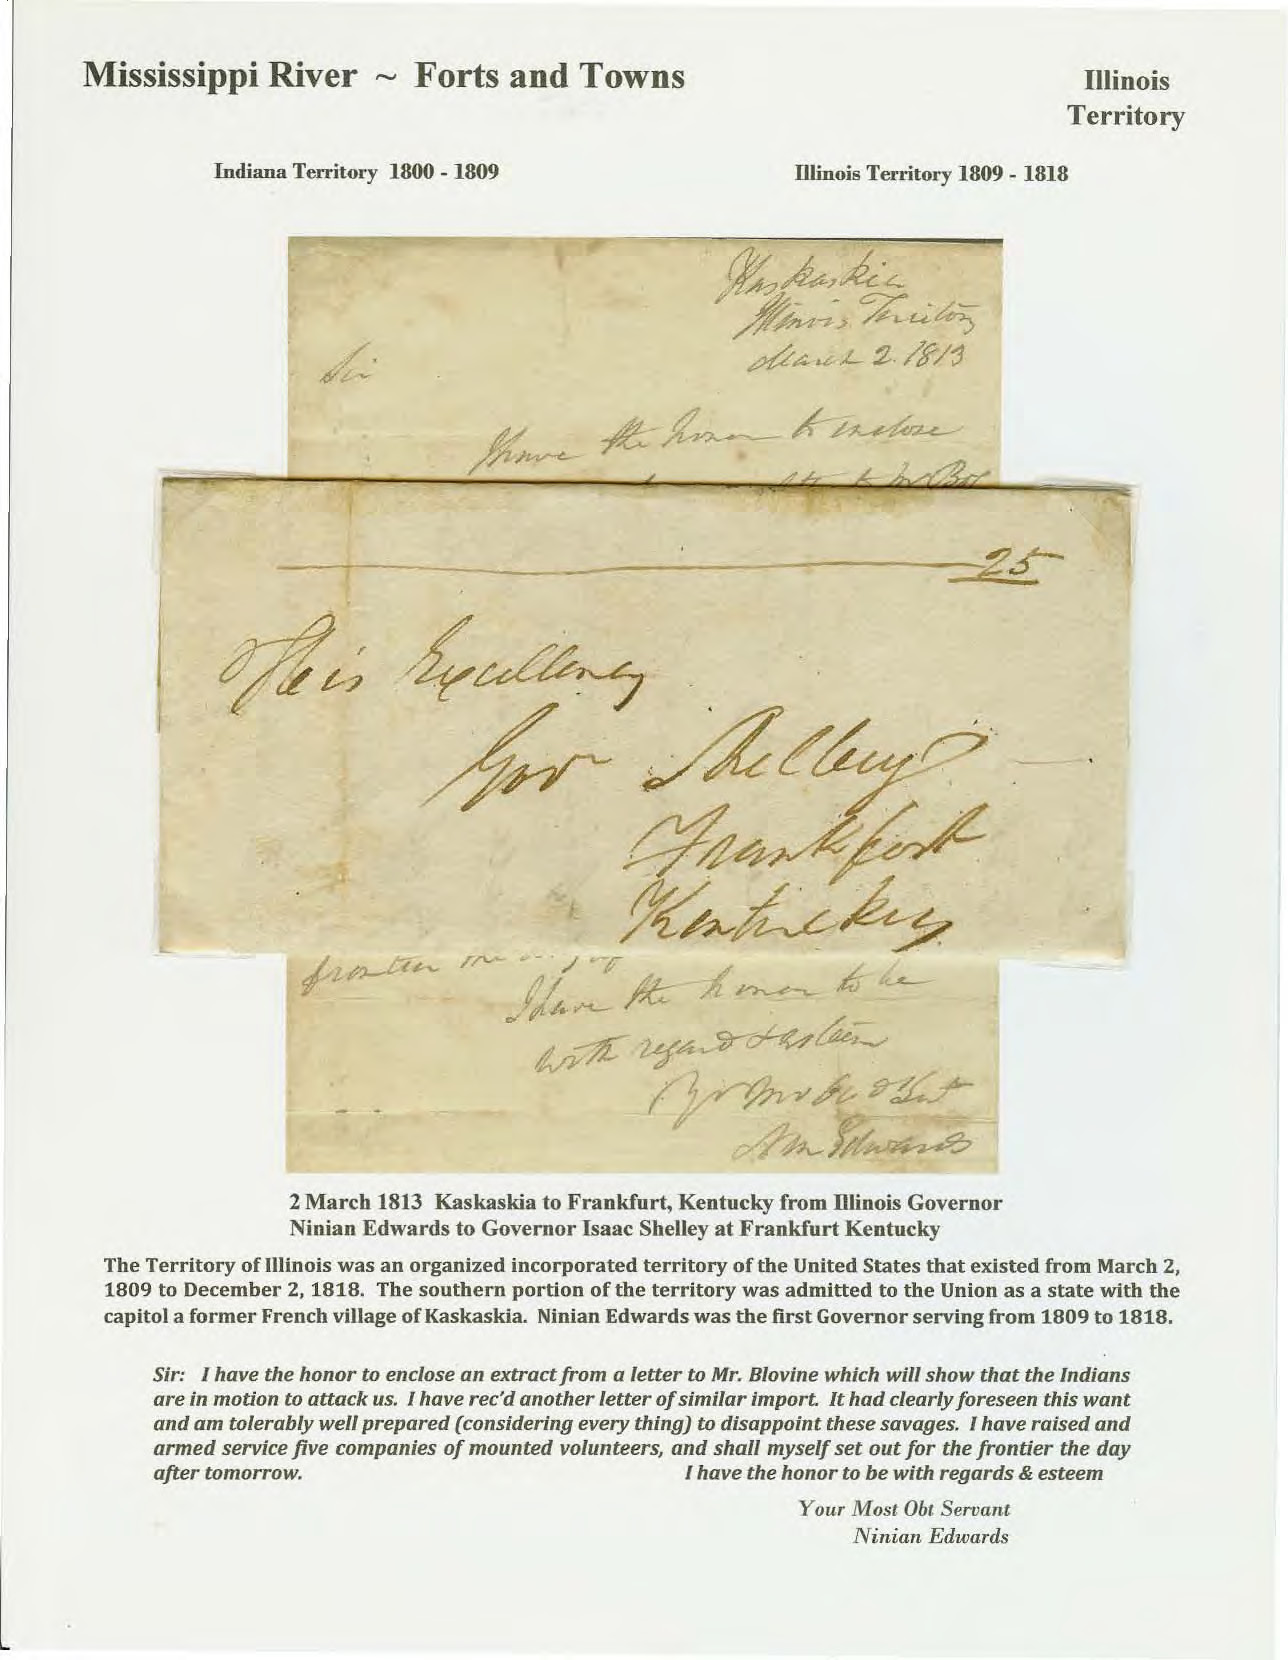 Mississippi River ~ Forts and Towns
Illinois
Territory
Indiana Territory 1800 - 1809
Illinois Territory 1809 - 1818
Kaskaskia
Illinois Territory
March 2. 1813
Sir
I have the honor to enclose
to Mr Bo
25
His Excellency
Gov Shelby
Frankfort
Kentucky
frontier the
I have the honor to be
with regard & esteem
Yr Mo Ob Svt
Nin Edwards
2 March 1813 Kaskaskia to Frankfurt, Kentucky from Illinois Governor
Ninian Edwards to Governor Isaac Shelley at Frankfurt Kentucky
The Territory of Illinois was an organized incorporated territory of the United States that existed from March 2,
1809 to December 2, 1818. The southern portion of the territory was admitted to the Union as a state with the
capitol a former French village of Kaskaskia. Ninian Edwards was the first Governor serving from 1809 to 1818.
Sir: I have the honor to enclose an extract from a letter to Mr. Blovine which will show that the Indians
are in motion to attack us. I have rec'd another letter of similar import. It had clearly foreseen this want
and am tolerably well prepared (considering every thing) to disappoint these savages. I have raised and
armed service five companies of mounted volunteers, and shall myself set out for the frontier the day
after tomorrow. I have the honor to be with regards & esteem
Your Most Obt Servant
Ninian Edwards